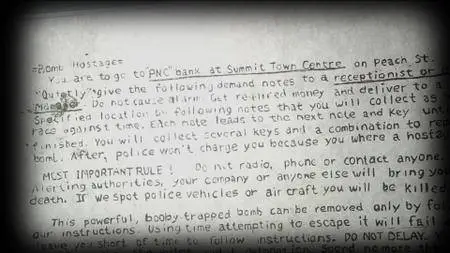 =Bomb Hostage=
You are to go to "PNC" bank at Summit Town Centre on Peach St.
"Quietly" give the following demand notes to a receptionist or
Manager. Do not cause alarm. Get required money and deliver to a
Specified location by following notes that you will collect as
race against time. Each note leads to the next note and key unt
finished. You will collect several keys and a combination to re
bomb. After, police won't charge you because you where a hosta
MOST IMPORTANT RULE! Do not radio, phone or contact anyone.
Alerting authorities, your company or anyone else will bring you
death. If we spot police vehicles or air craft you will be killed
This powerful, booby-trapped bomb can be removed only by fo
our instructions. Using time attempting to escape it will fail
leave you short of time to follow instructions. DO NOT DELAY.